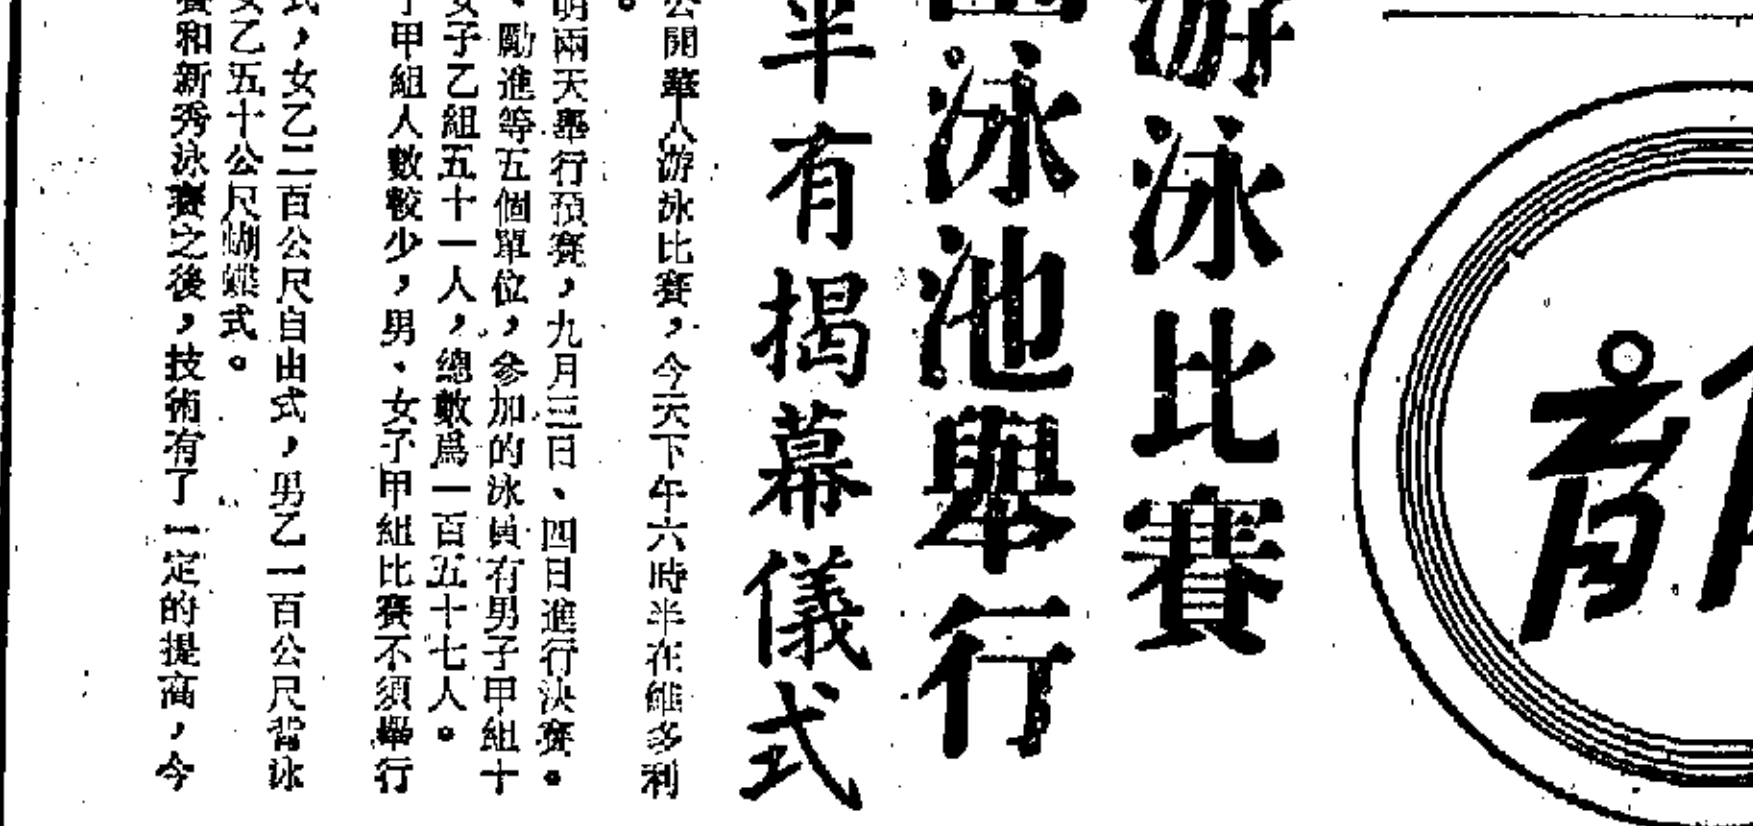 育
游泳比賽
泳池舉行
半有揭幕儀式
公開華人游泳比賽，今天下午六時半在維多利
。
明兩天舉行預賽，九月三日、四日進行決賽。
、勵進等五個單位，參加的泳員有男子甲組十
女子乙組五十一人，總數爲一百五十七人。
子甲組人數較少，男、女子甲組比賽不須舉行
式，女乙二百公尺自由式，男乙一百公尺背泳
女乙五十公尺蝴蝶式。
賽和新秀泳賽之後，技術有了一定的提高，今